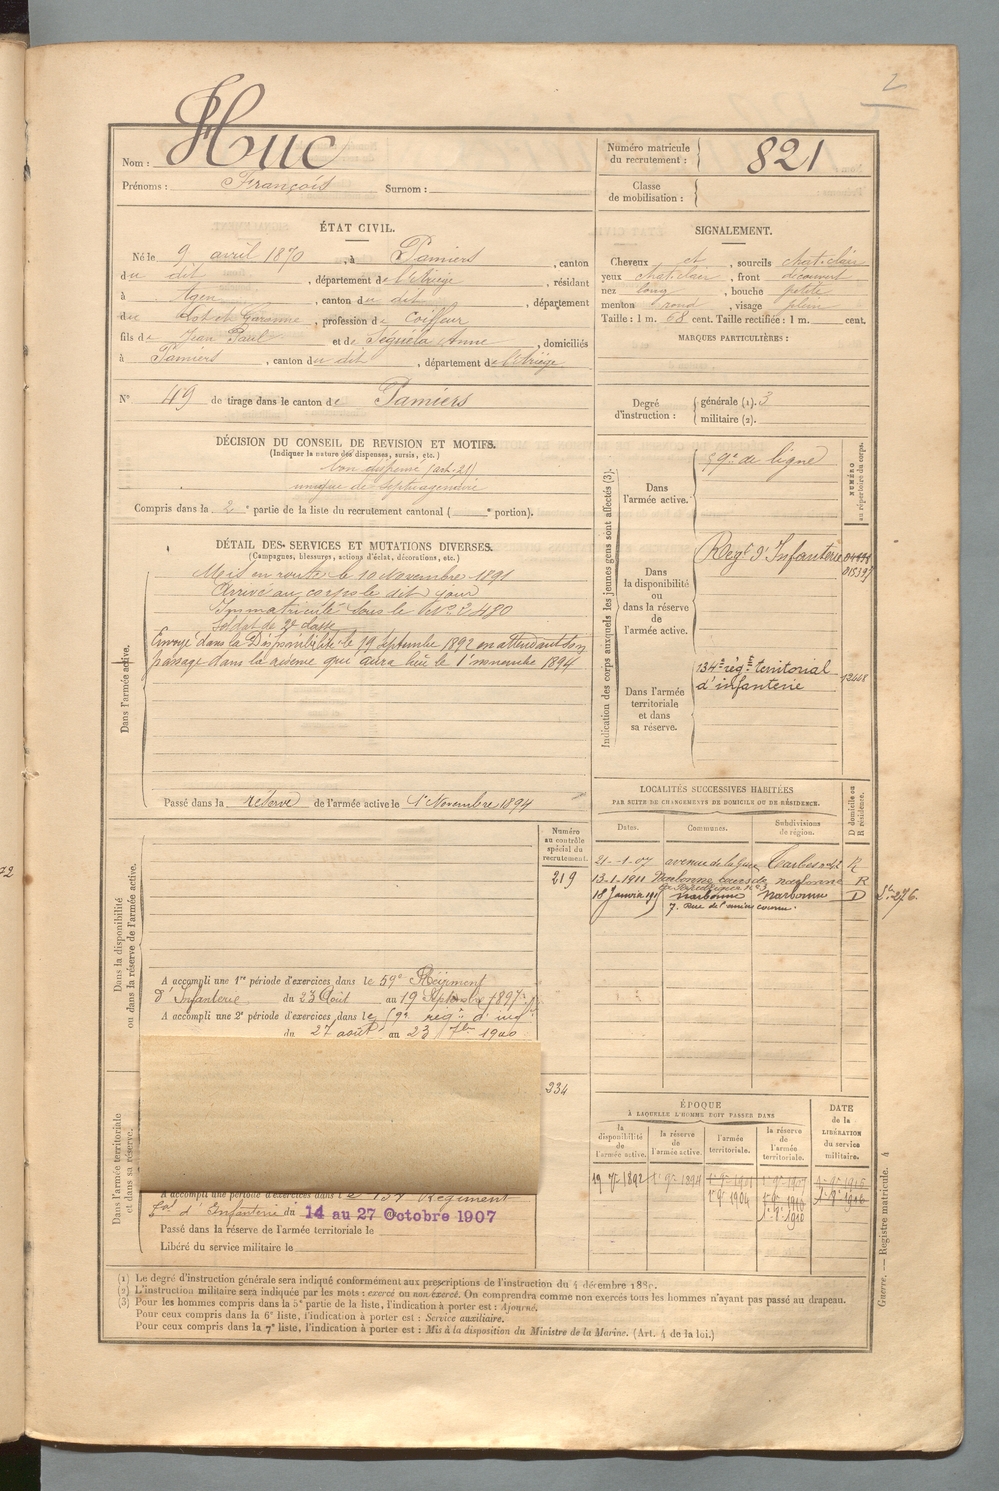 2
Nom : Huc
Prénoms : François Surnom :
Numéro matricule du recrutement : 821
Classe de mobilisation :
ÉTAT CIVIL.
Né le 9 avril 1870, à Pamiers, canton
du dit, département de l'Ariège, résidant
à Agen, canton du dit, département
du Lot et Garonne, profession de Coiffeur
fils de Jean Paul et de Séguéla Anne, domiciliés
à Pamiers, canton du dit, département de l'Ariège
N° 49 de tirage dans le canton de Pamiers
SIGNALEMENT.
Cheveux et, sourcils chat. clair
yeux chat. clair, front découvert
nez long, bouche petite
menton rond, visage plein
Taille : 1 m. 68 cent. Taille rectifiée : 1 m. cent.
MARQUES PARTICULIÈRES :
Degré d'instruction : générale (1). 3
militaire (2).
DÉCISION DU CONSEIL DE REVISION ET MOTIFS.
(Indiquer la nature des dispenses, sursis, etc.)
bon dispensé (art. 21)
unique de septuagénaire
Compris dans la 2e partie de la liste du recrutement cantonal ( e portion).
DÉTAIL DES SERVICES ET MUTATIONS DIVERSES.
(Campagnes, blessures, actions d'éclat, décorations, etc.)
Dans l'armée active.
Mis en route le 10 Novembre 1891
Arrivé au corps le dit jour
Immatriculé sous le N° 2480
Soldat de 2e classe
Envoyé dans la Disponibilité le 19 Septembre 1892 en attendant son
passage dans la réserve qui aura lieu le 1er novembre 1894
Passé dans la réserve de l'armée active le 1er Novembre 1894
Indication des corps auxquels les jeunes gens sont affectés (3).
NUMÉRO au répertoire du corps.
Dans l'armée active.
59e de ligne
Dans la disponibilité ou dans la réserve de l'armée active.
Regt d'Infanterie
Dans l'armée territoriale et dans sa réserve.
134e rég. territorial
d'infanterie
LOCALITÉS SUCCESSIVES HABITÉES
PAR SUITE DE CHANGEMENTS DE DOMICILE OU DE RÉSIDENCE.
Dates. Communes. Subdivisions de région. D domicile ou R résidence.
21-1-07 avenue de la Gare Tarbes R
13-1-1911 Narbonne cours de narbonne R
18 Janvier narbonne Narbonne D
7. Rue de
Dans la disponibilité ou dans la réserve de l'armée active.
Numéro au contrôle spécial du recrutement.
219
A accompli une 1re période d'exercices dans le 59e Régiment
d'Infanterie du 23 Août au 19 Septembre 1897
A accompli une 2e période d'exercices dans le 59e rég. d'inf.
du 27 août au 23 7bre 1900
234
Dans l'armée territoriale et dans sa réserve.
A accompli une période d'exercices dans le 134 Régiment
d'Infanterie du 14 au 27 Octobre 1907
Passé dans la réserve de l'armée territoriale le
Libéré du service militaire le
ÉPOQUE
À LAQUELLE L'HOMME DOIT PASSER DANS
la disponibilité de l'armée active. la réserve de l'armée active. l'armée territoriale. la réserve de l'armée territoriale.
DATE de la LIBÉRATION du service militaire.
19 7 1892
1904
(1) Le degré d'instruction générale sera indiqué conformément aux prescriptions de l'instruction du 4 décembre 1889.
(2) L'instruction militaire sera indiquée par les mots : exercé ou non exercé. On comprendra comme non exercés tous les hommes n'ayant pas passé au drapeau.
(3) Pour les hommes compris dans la 5e partie de la liste, l'indication à porter est : Ajourné.
Pour ceux compris dans la 6e liste, l'indication à porter est : Service auxiliaire.
Pour ceux compris dans la 7e liste, l'indication à porter est : Mis à la disposition du Ministre de la Marine. (Art. 4 de la loi.)
Guerre. — Registre matricule. 4